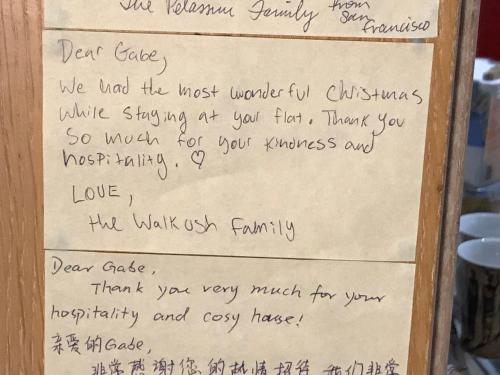 The Pelassini Family from
San
Francisco
Dear Gabe,
We had the most wonderful Christmas
while staying at your flat. Thank you
so much for your kindness and
hospitality. ♡
LOVE,
the Walkush Family
Dear Gabe,
Thank you very much for your
hospitality and cosy house!
亲爱的Gabe,
非常感谢您的热情招待 我们非常